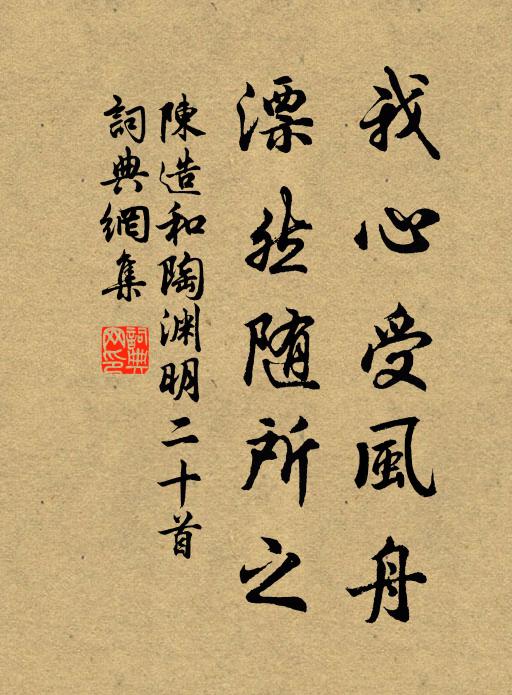 我心受風舟
漂然随所之
陳造和陶淵明二十首
詞典網集
詞典網印